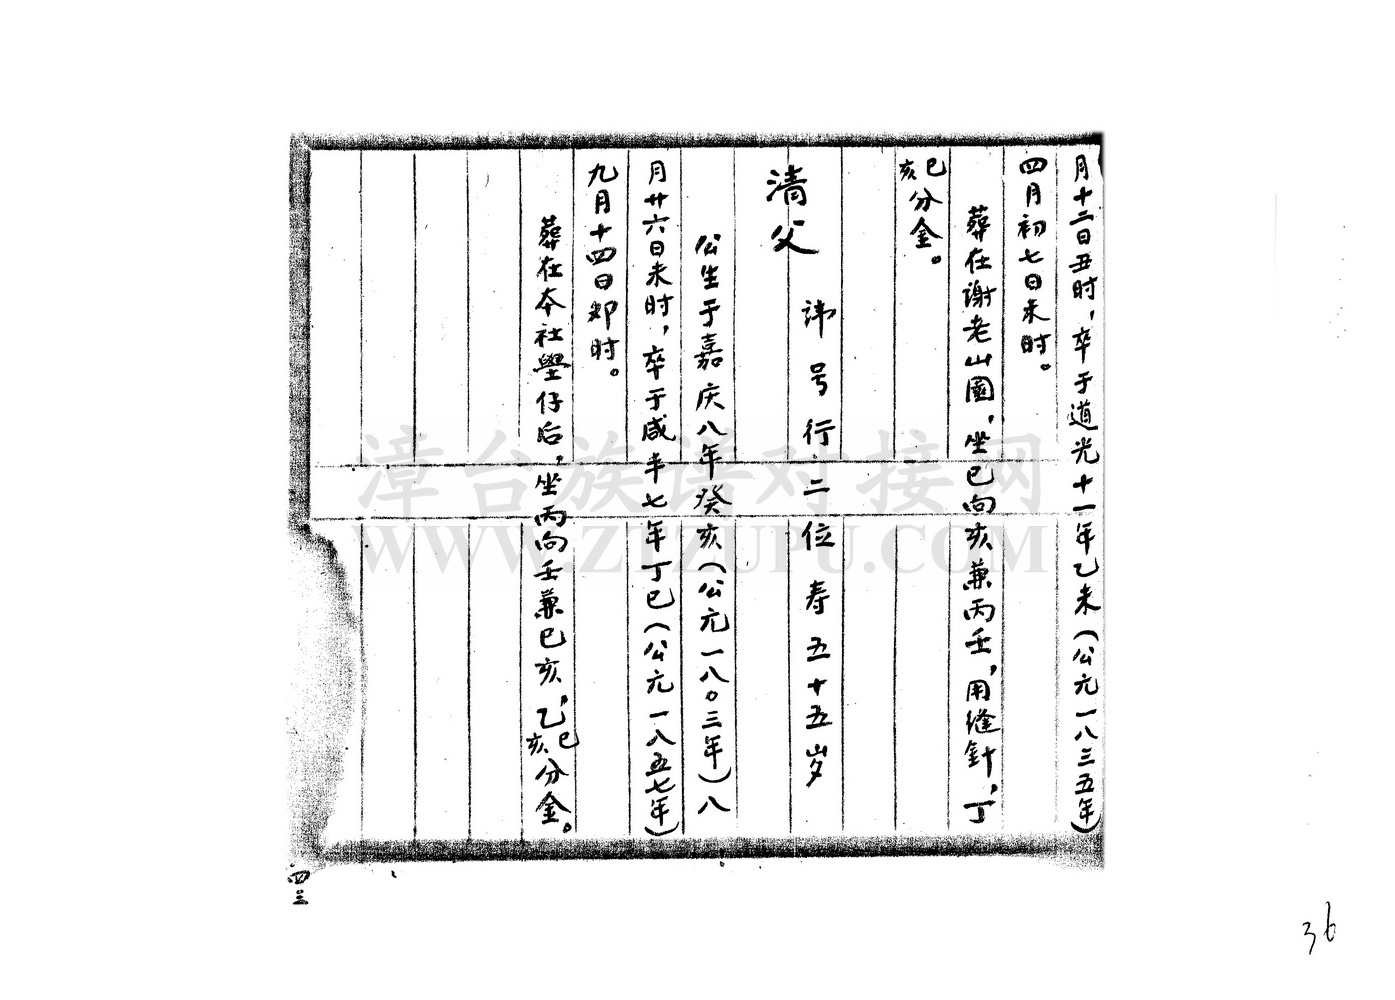 月十二日丑时，卒于道光十一年乙未（公元一八三五年）
四月初七日未时。
葬在谢老山園，坐巳向亥兼丙壬，用缝針，丁
巳亥分金。
清父
讳号行二位寿五十五岁
公生于嘉庆八年癸亥（公元一八〇三年）八
月廿六日未时，卒于咸丰七年丁巳（公元一八五七年）
九月十四日卯时。
葬在本社壆仔后，坐丙向壬兼巳亥，乙巳亥分金。
四三
36
漳台族谱对接网
WWW.ZTZUPU.COM